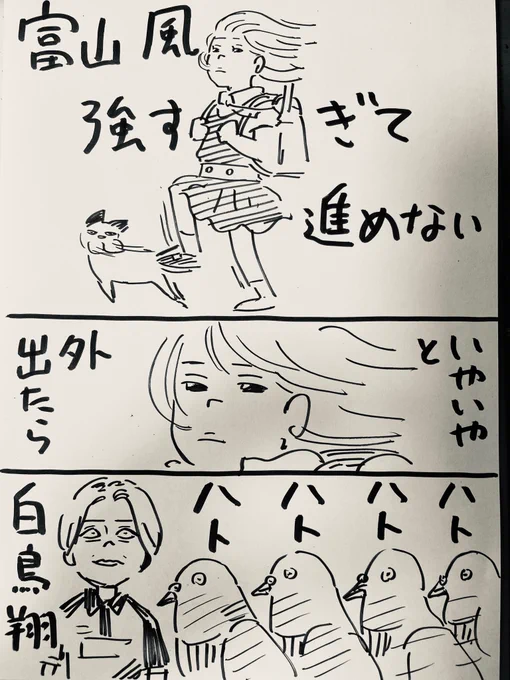 富山 風
強すぎて
進めない
いやいや
と
外
出たら
ハト
ハト
ハト
ハト
白鳥翔